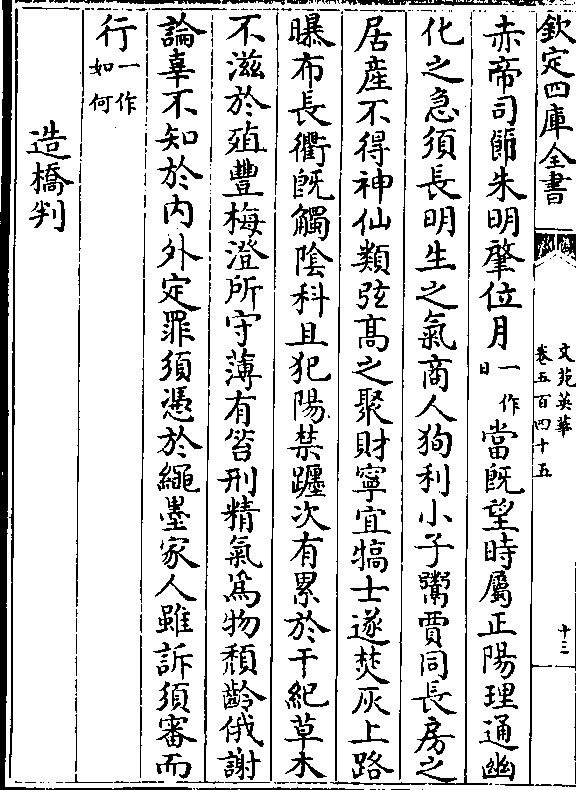 欽定四庫全書
文苑英華
卷五百四十五
十三
赤帝司節朱明肇位月一作日當既望時屬正陽理通幽
化之急須長明生之氣商人狥利小子鬻賈同長房之
居產不得神仙類弦髙之聚財寧宜犒士遂焚灰上路
曝布長衢既觸陰科且犯陽禁躔次有累於干紀草木
不滋於殖豐梅澄所守薄有笞刑精氣為物頽齡俄謝
論辜不知於內外定罪須憑於繩墨家人雖訴須審而
行一作如何
造橋判